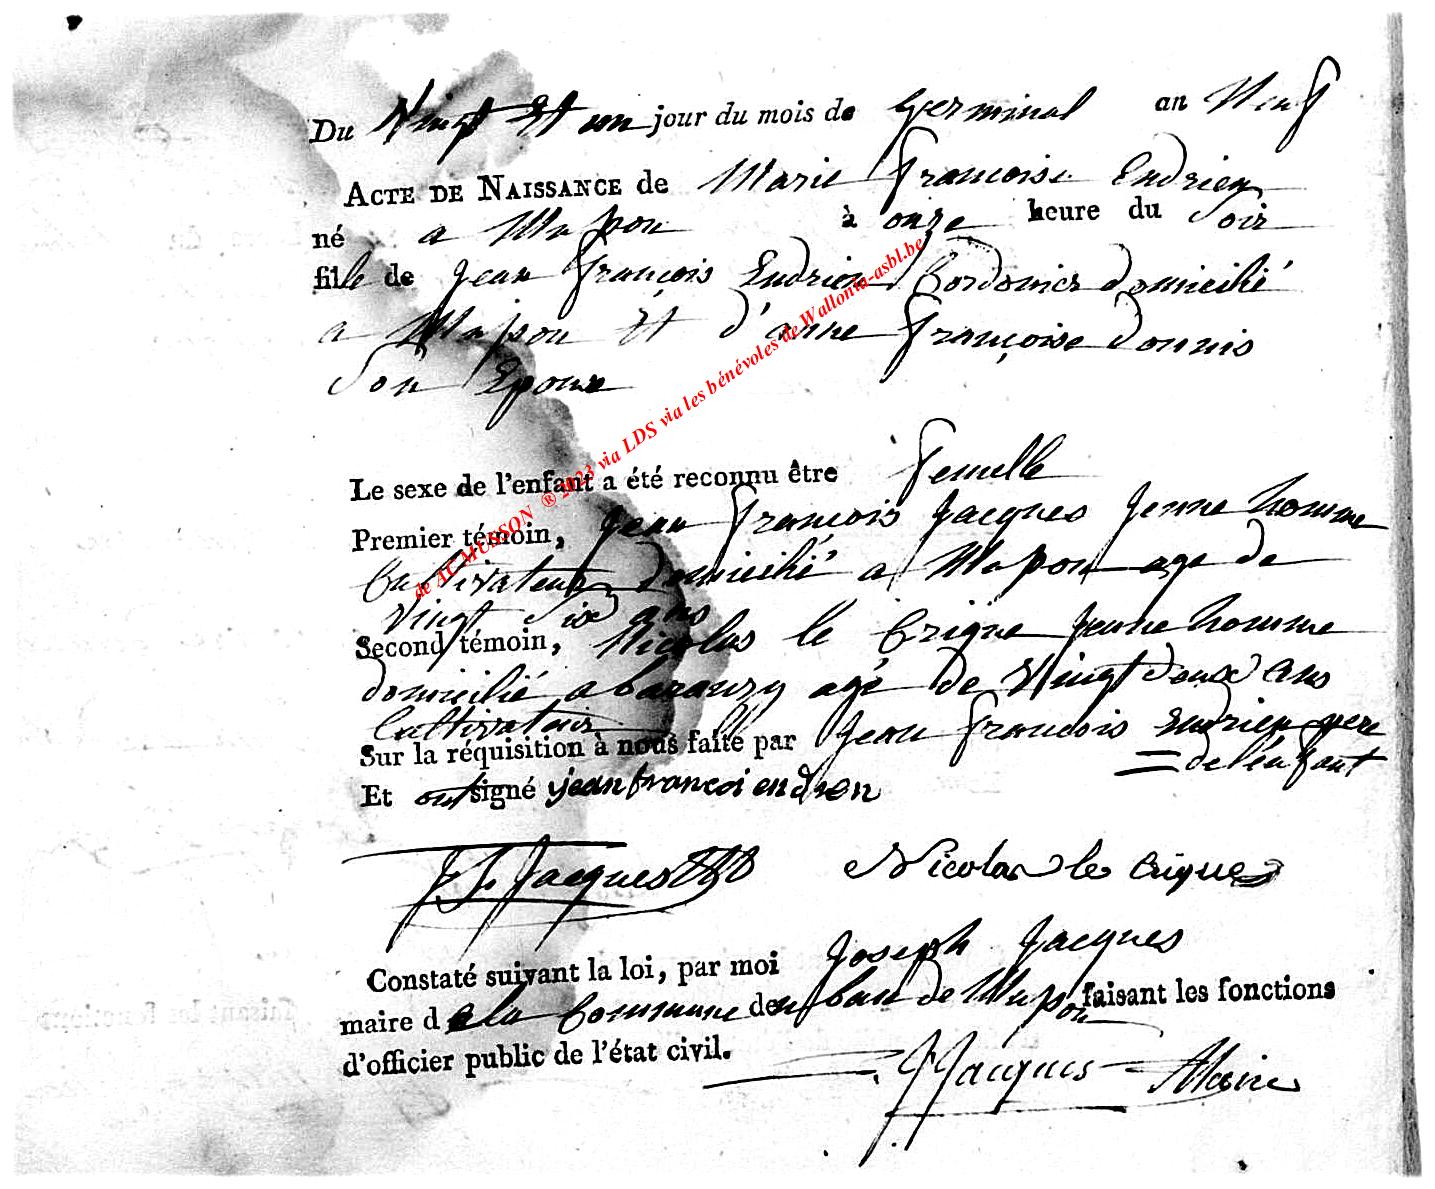 Du Vingt Et un jour du mois de Germinal an Neuf
ACTE DE NAISSANCE de Marie francoise Endrien
né a Muson à onze heure du Soir
fille de Jean françois Endrien Cordonier domicilié
a Muson Et d'anne françoise
Son Epouse
Le sexe de l'enfant a été reconnu être femelle
Premier témoin, Jean françois Jacques Jeune homme
Cultivateur domicilié a Muson age de
Vingt Six ans
Second témoin, Nicolas le Crique Jeune homme
domicilié a baranzy agé de Vingt deux ans
Cultivateur
Sur la réquisition à nous faite par Jean francois Endrien pere
= de l'enfant
Et ont signé jean francoi endrien
J f Jacques Nicolas le Crique
Constaté suivant la loi, par moi Joseph Jacques
maire de la Commune du ban de Muson faisant les fonctions
d'officier public de l'état civil.
J Jacques Maire
de ACMUSSON ® 2023 via LDS via les bénévoles de Wallonia-asbl.be